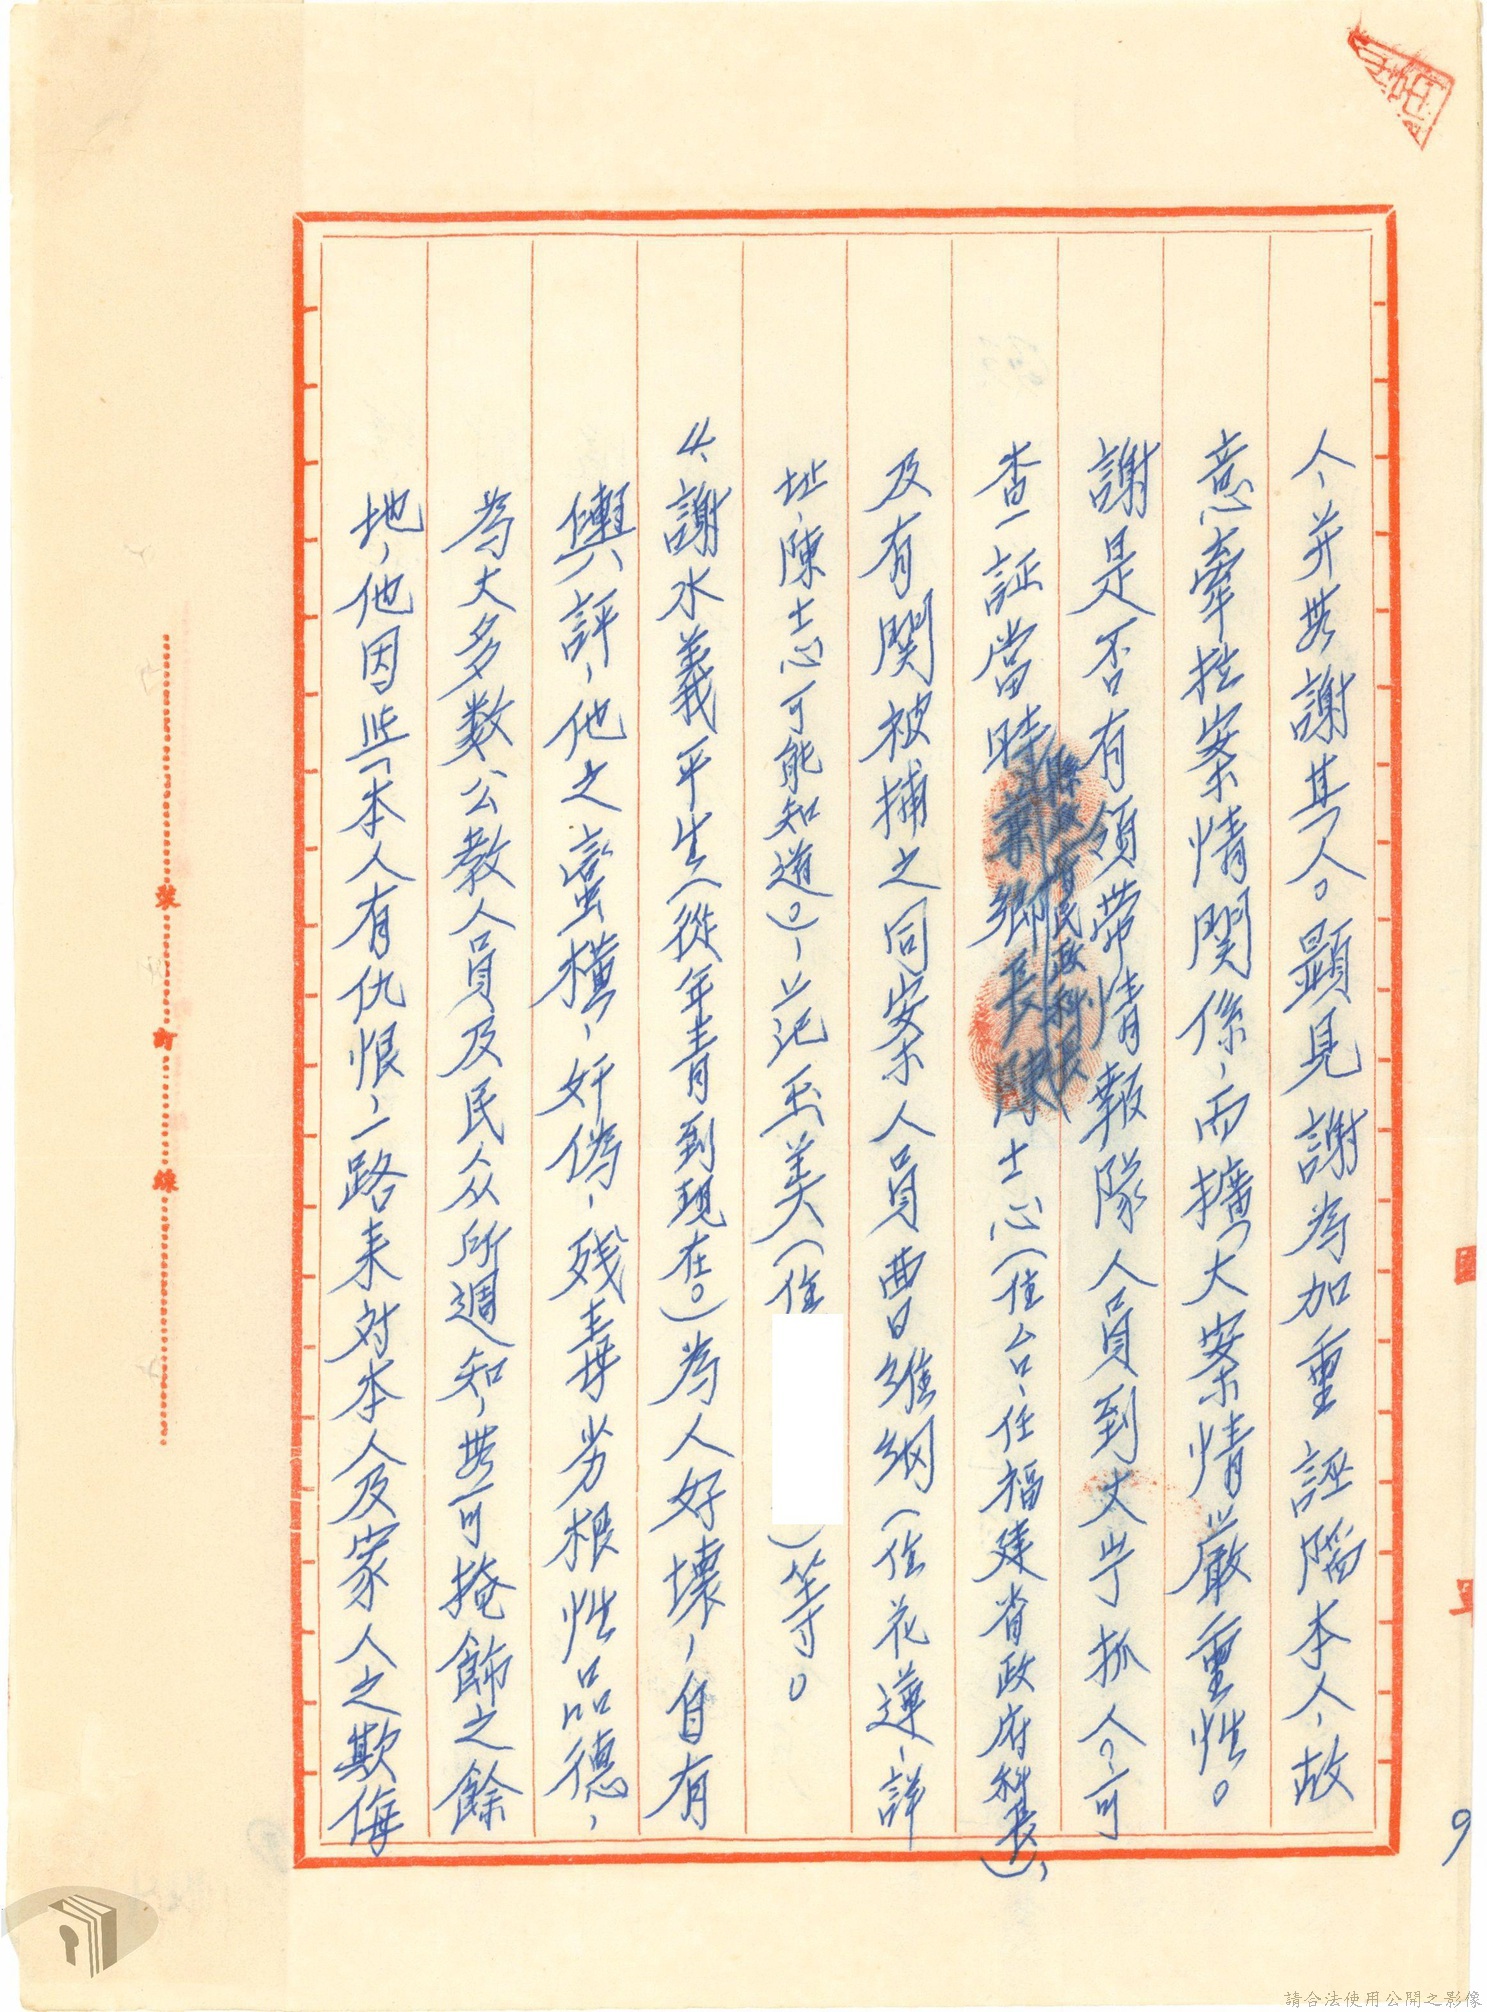 人、并無謝其人。顯見謝為加重誣陷本人、故
意牽拄案情関係、而擴大案情嚴重性。
謝是否有領帶情報隊人員到丈岸抓人？可
查一証當時
縣政府民政科長
兼鄉長陳士心(住台、任福建省政府科長)、
及有関被捕之同案人員曹維綱(住花蓮、詳
址、陳士心可能知道。)、范玉美(住
)等。
4、謝水義平生(從年青到現在。)為人好壞、自有
輿評、他之蠻橫、奸偽、殘毒劣根性品德、
為大多数公教人員及民众所週知、無可掩飾之餘
地、他因些本人有仇恨、一路来对本人及家人之欺侮
裝
訂
線
9
請合法使用公開之影像